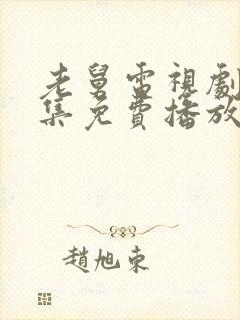 老舅電視劇
集免費播放
趙旭東